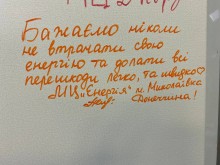 Бажаємо ніколи
не втрачати свою
енергію та долати всі
перешкоди легко, та швидко♡
МЦ "Енергія" м. Миколаївка
Донеччина!